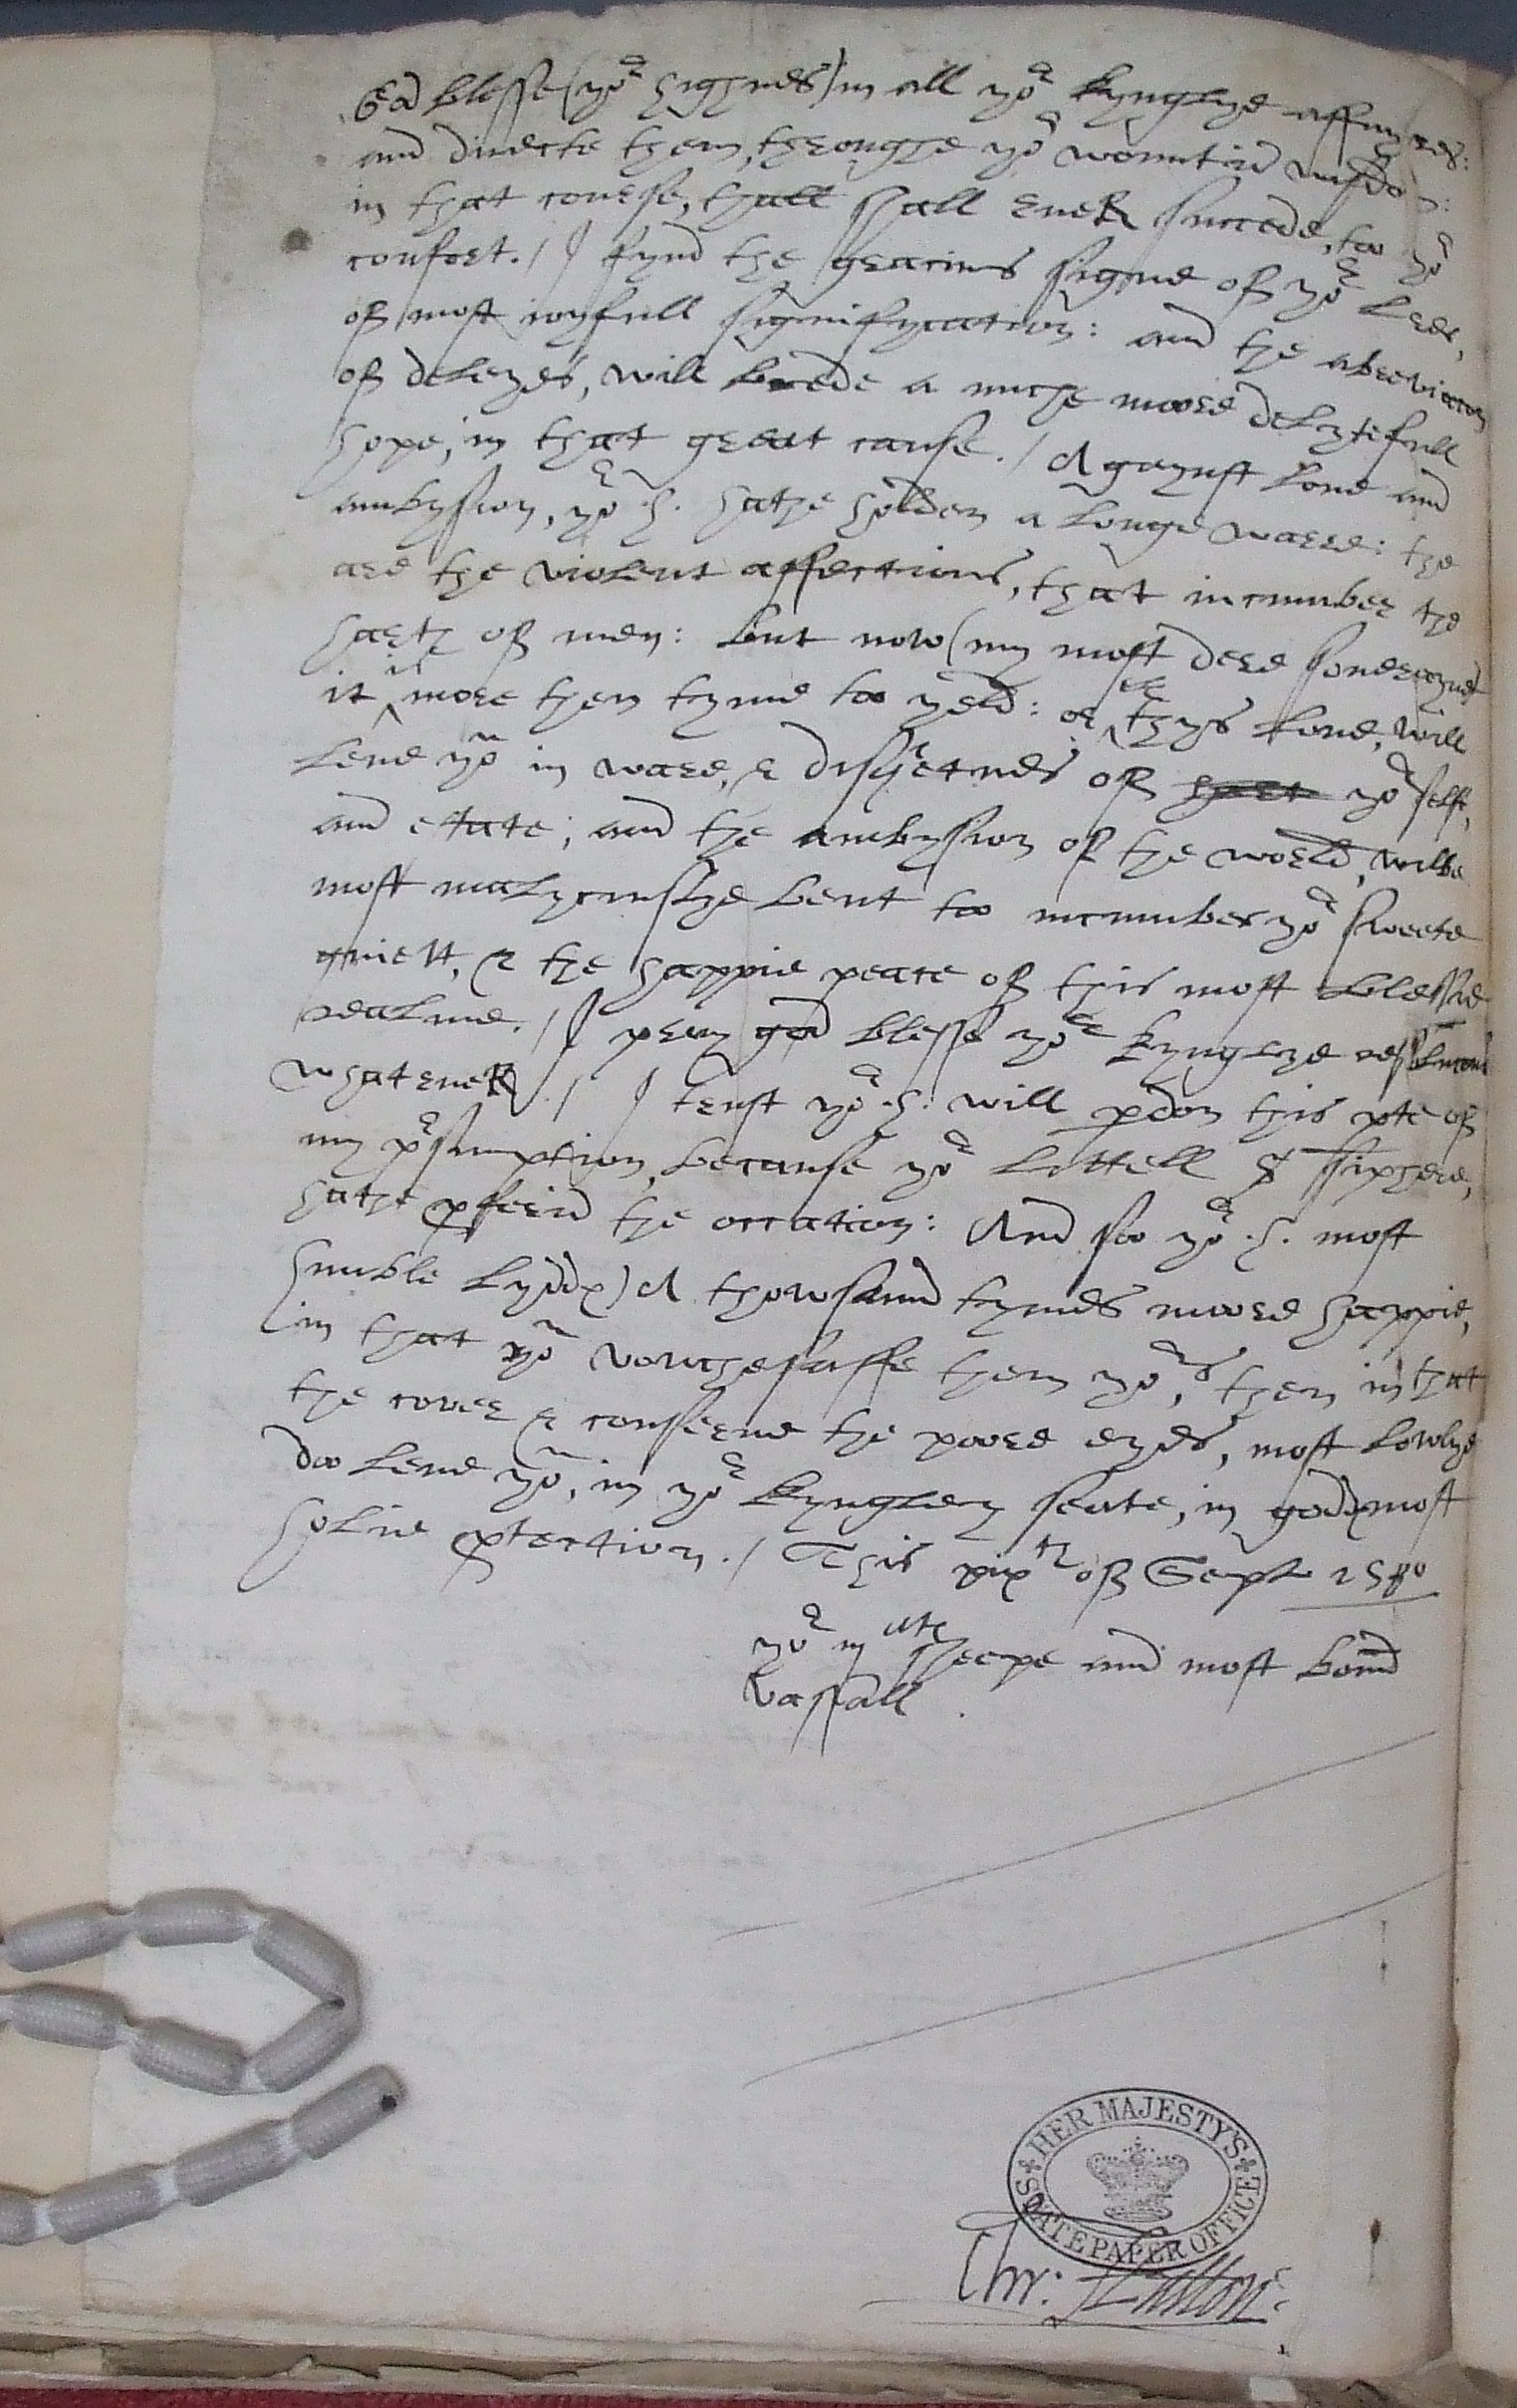 God blesse (yor highnes) in all yor kynglye affayres:
and directe them, throughe yor wountid wisdo:
in that course, thatt shall eueR succede, too yor
confort. / I fynd the gracius signe of yor lres,
of most ioyfull signifycation: and the abreviation
of deleyes, will brede a muche moore delytefull
hope, in that great cause. / Agaynst loue and
ambysion, yor .h. hathe holden a longe warre: the
are the violent affections, that incumber the
harts of men: but now (my most dere soueraynd)
it is more then tyme too yeld: or els thys loue, will
leue you in warre, & disquietnes of hart yor selff,
and estate; and the ambysion of the world, wilbe
most malyciuslye bent too incumber yor sweete
quiett, & the happie peace of this most blessid
realme. / I pray god blesse yor kynglye resolucions
whateueR. / I trust yor .h. will pdon this pte of
my prsumption, because yor littell siphere,
hathe pferid the occation: And soo yor .h. most
humble lydds) A thowsannd tymes moore happie,
in that you vouchesaffe them yors, then in that
the couer & conserue the poore eyes, most lowlye
doo leue you, in yor kyngley seate, in gods most
holie ptection. / This xixth of Sept 1580
yor mates sheepe and most bound
vassall.
HER MAJESTY'S
STATE PAPER OFFICE
Chr: Hatton